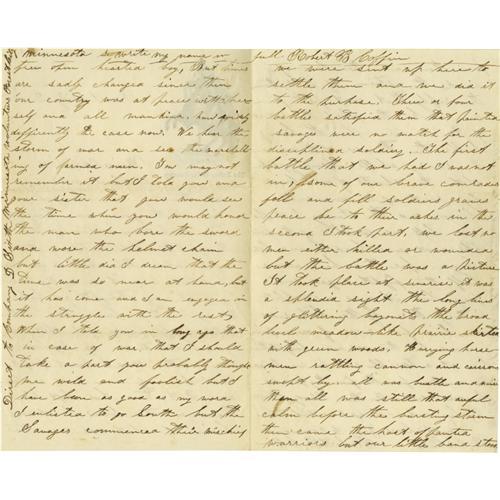 Direct to Company D Sixth Minnesota Volunteers
Minnesota so write my name in
free open hearted boy, But times
are sadly changed since then
our country was at peace with her
self and all mankind how
differently the case now. We hear the
storm of war and see the marshell
ing of armed men, You may not
remember it but I told you and
your sister that you would see
the time when you would honor
the man who bore the sword
and wore the helmet chain
but little did I dream that the
time was so near at hand, but
it has come and I am engaged in
the struggles with the rest,
When I told you in long ago that
in case of war, that I should
take a part you probably thought
me wild and foolish but I
have been as good as my word
I enlisted to go South but the
Savages commenced their mischief
full Robert B Coffin
we were sent up here to
settle them and we did it
to the purpose. Three or four
battles satisfied them that painted
savages were no match for the
disciplined soldier, The first
battle that we had I was not
in; some of our brave comrads
fell and fill soldiers graves
peace be to their ashes in the
second I took part, we lost no
men either killed or wounded
but the battle was a picture
It took place at sunrise it was
a splendid sight the long lines
of glittering bayonets the broad
level meadow like prairie skirted
with green woods. Hurrying horse
men rattling cannon and caisson
swept by. all was bustle and
then all was still that awful
calm before the bursting storm
then came the host of painted
warriors but our little band stood